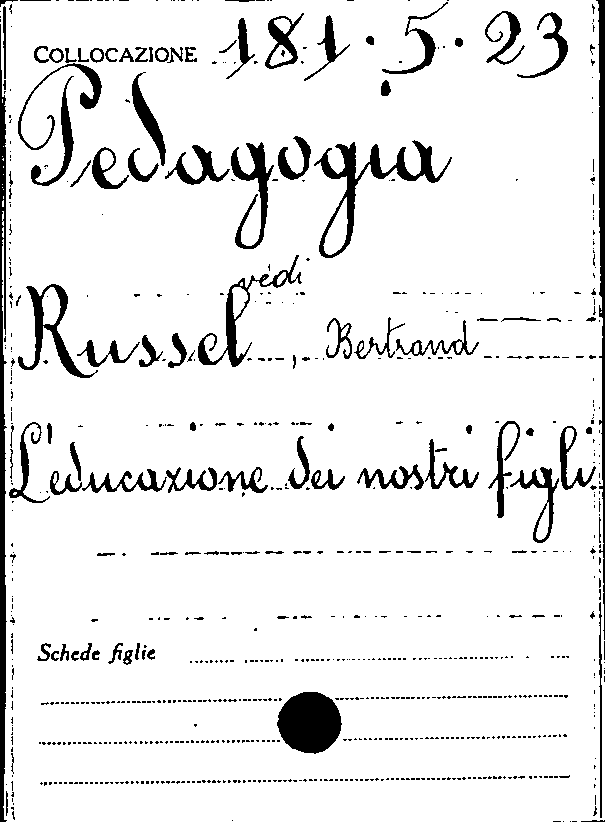 COLLOCAZIONE 181.5.23
Pedagogia
vedi
Russel, Bertrand
L'educazione dei nostri figli
Schede figlie